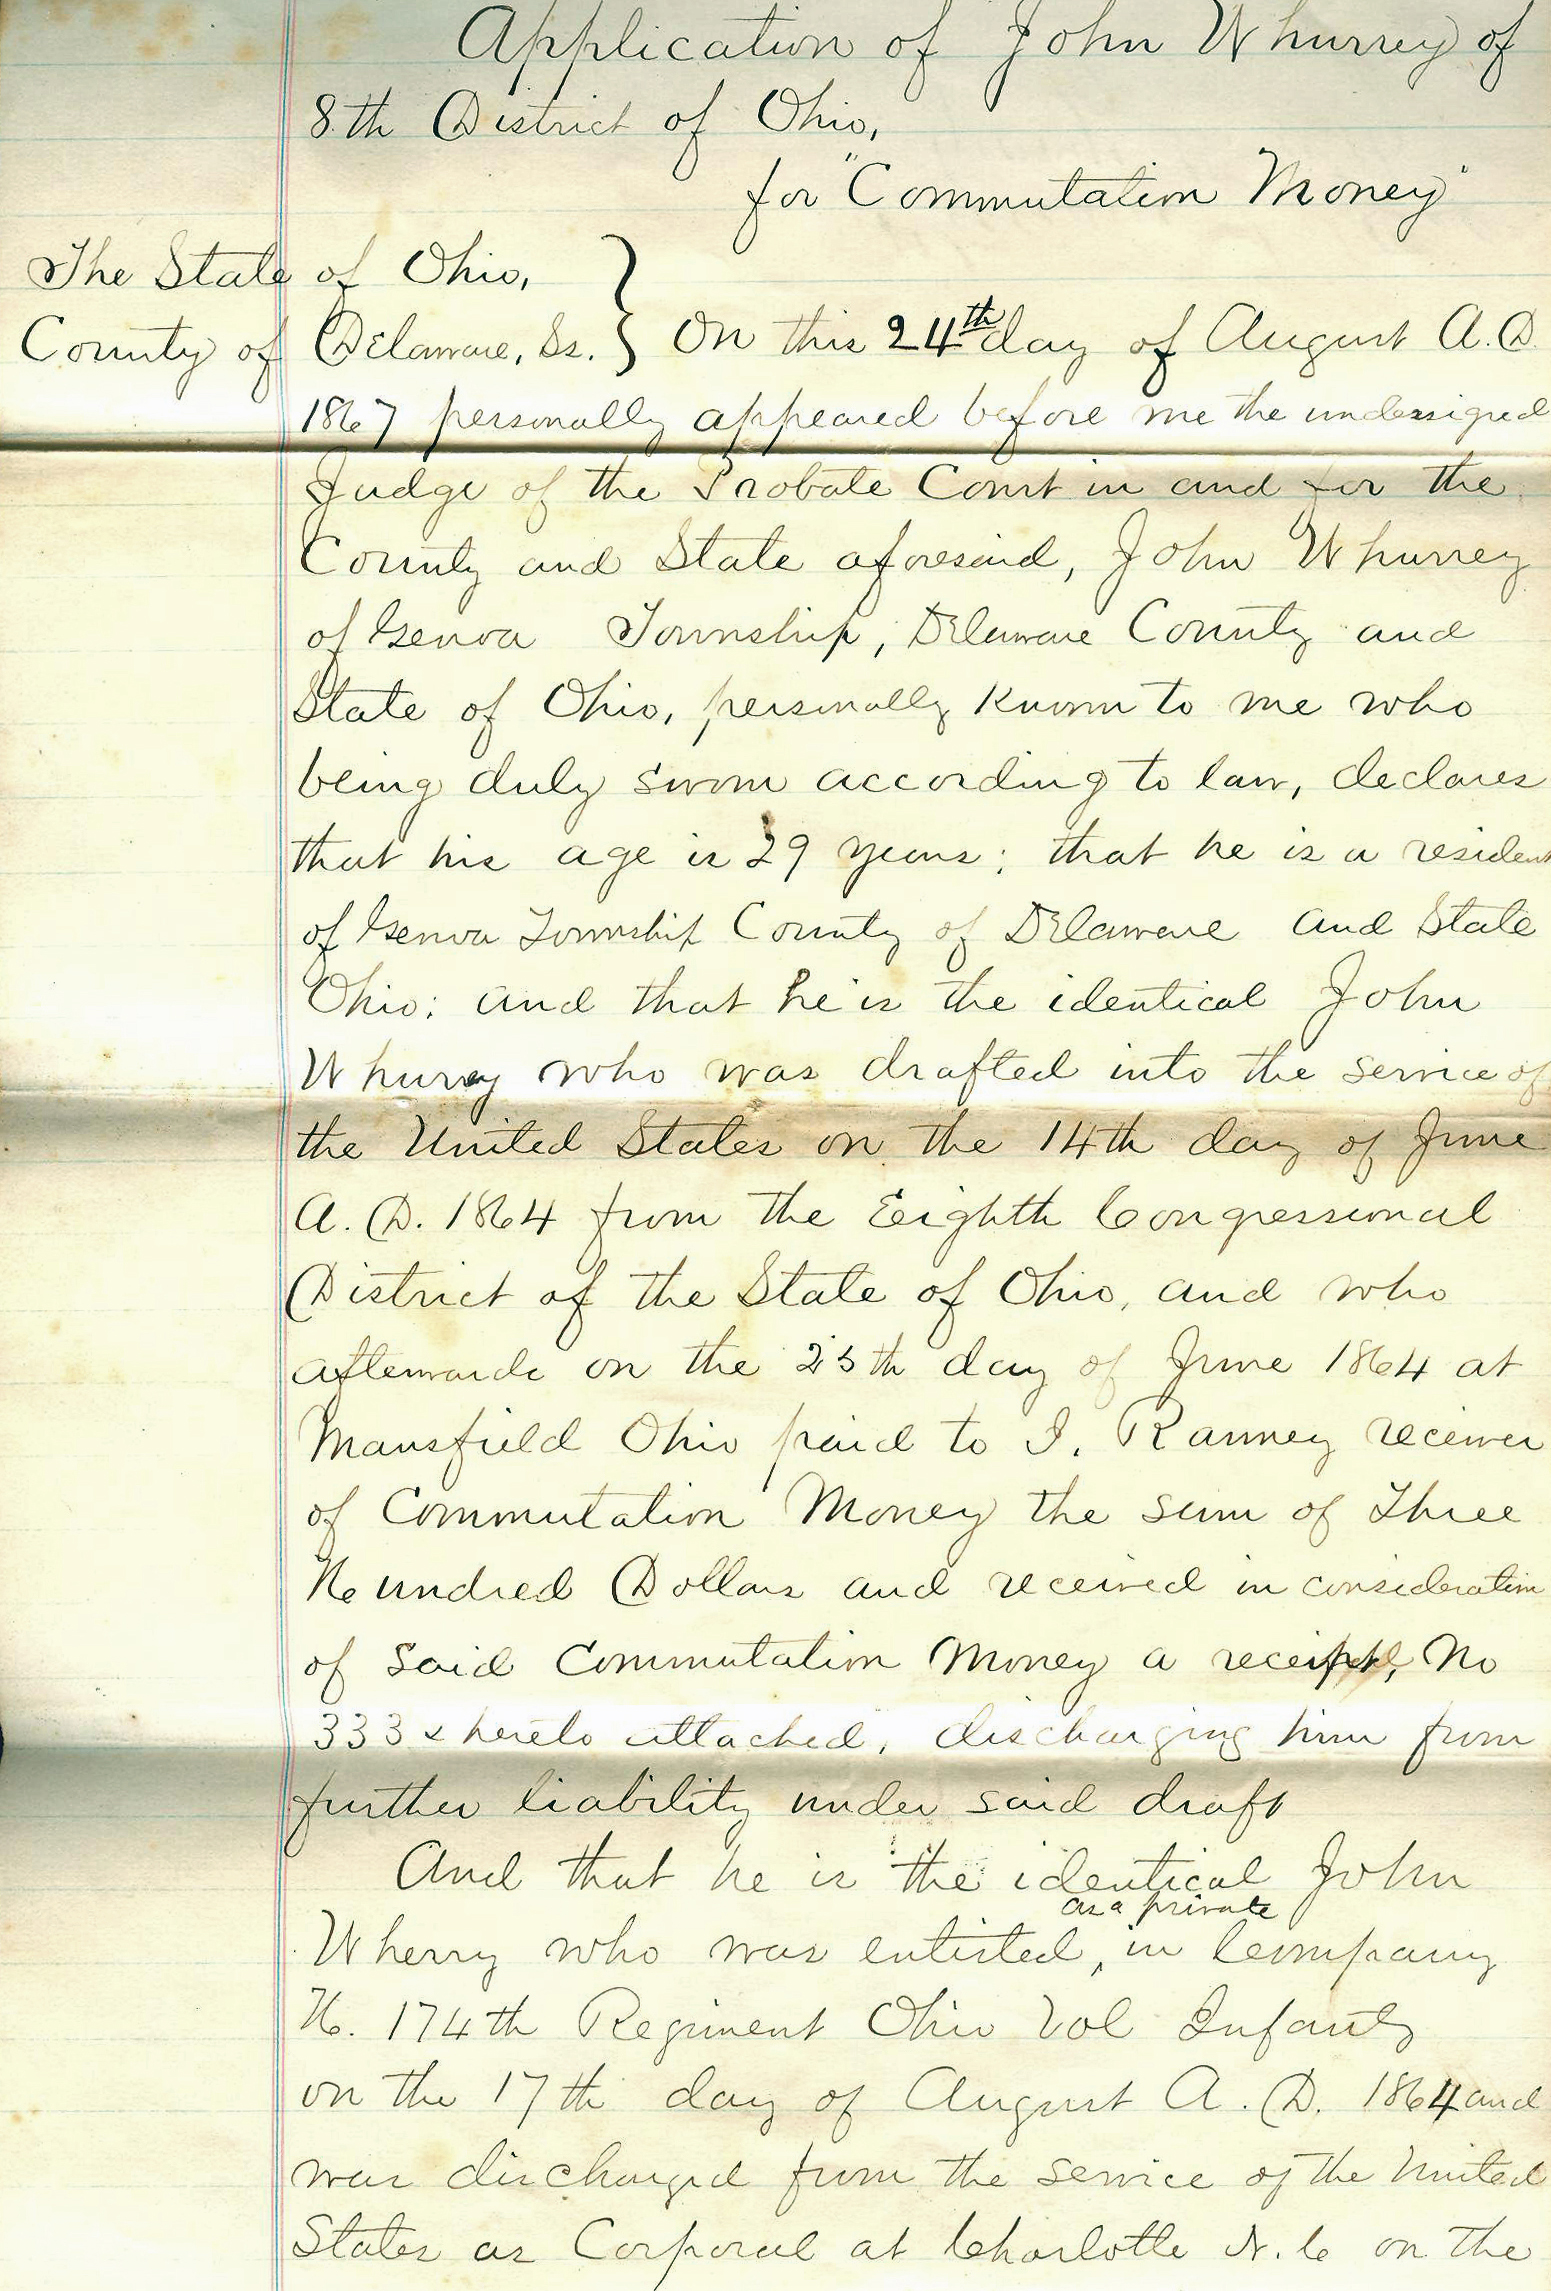 Application of John Whurrey of
8th District of Ohio,
for "Commutation Money"
The State of Ohio,
County of Delaware, Ss. } On this 24th day of August A.D.
1867 personally appeared before me the undersigned
Judge of the Probate Court in and for the
County and State aforesaid, John Whurrey
of Genoa Township, Delaware County and
State of Ohio, personally known to me who
being duly sworn according to law, declares
that his age is 29 years; that he is a resident
of Genoa Township County of Delaware and State
Ohio; and that he is the identical John
Whurrey who was drafted into the service of
the United States on the 14th day of June
A.D. 1864 from the Eighth Congressional
District of the State of Ohio, and who
afterwards on the 25th day of June 1864 at
Mansfield Ohio paid to I. Ranney receiver
of Commutation Money the sum of Three
Hundred Dollars and received in consideration
of said Commutation Money a receipt, No
333 & hereto attached, discharging him from
further liability under said draft
And that he is the identical John
as a private
Wherry who was entisted, in Company
H. 174th Regiment Ohio Vol Infanty
on the 17th day of August A.D. 1864 and
was discharged from the service of the United
States as Corporal at Charlotte N.C on the